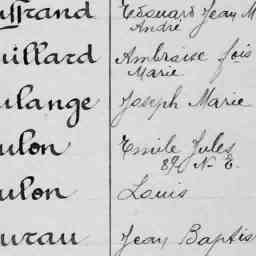 uffrand Edouard Jean M
André
uillard Ambroise fois
Marie
ulange Joseph Marie
ulon Emile Jules
Louis
ulon
urau Jean Baptis